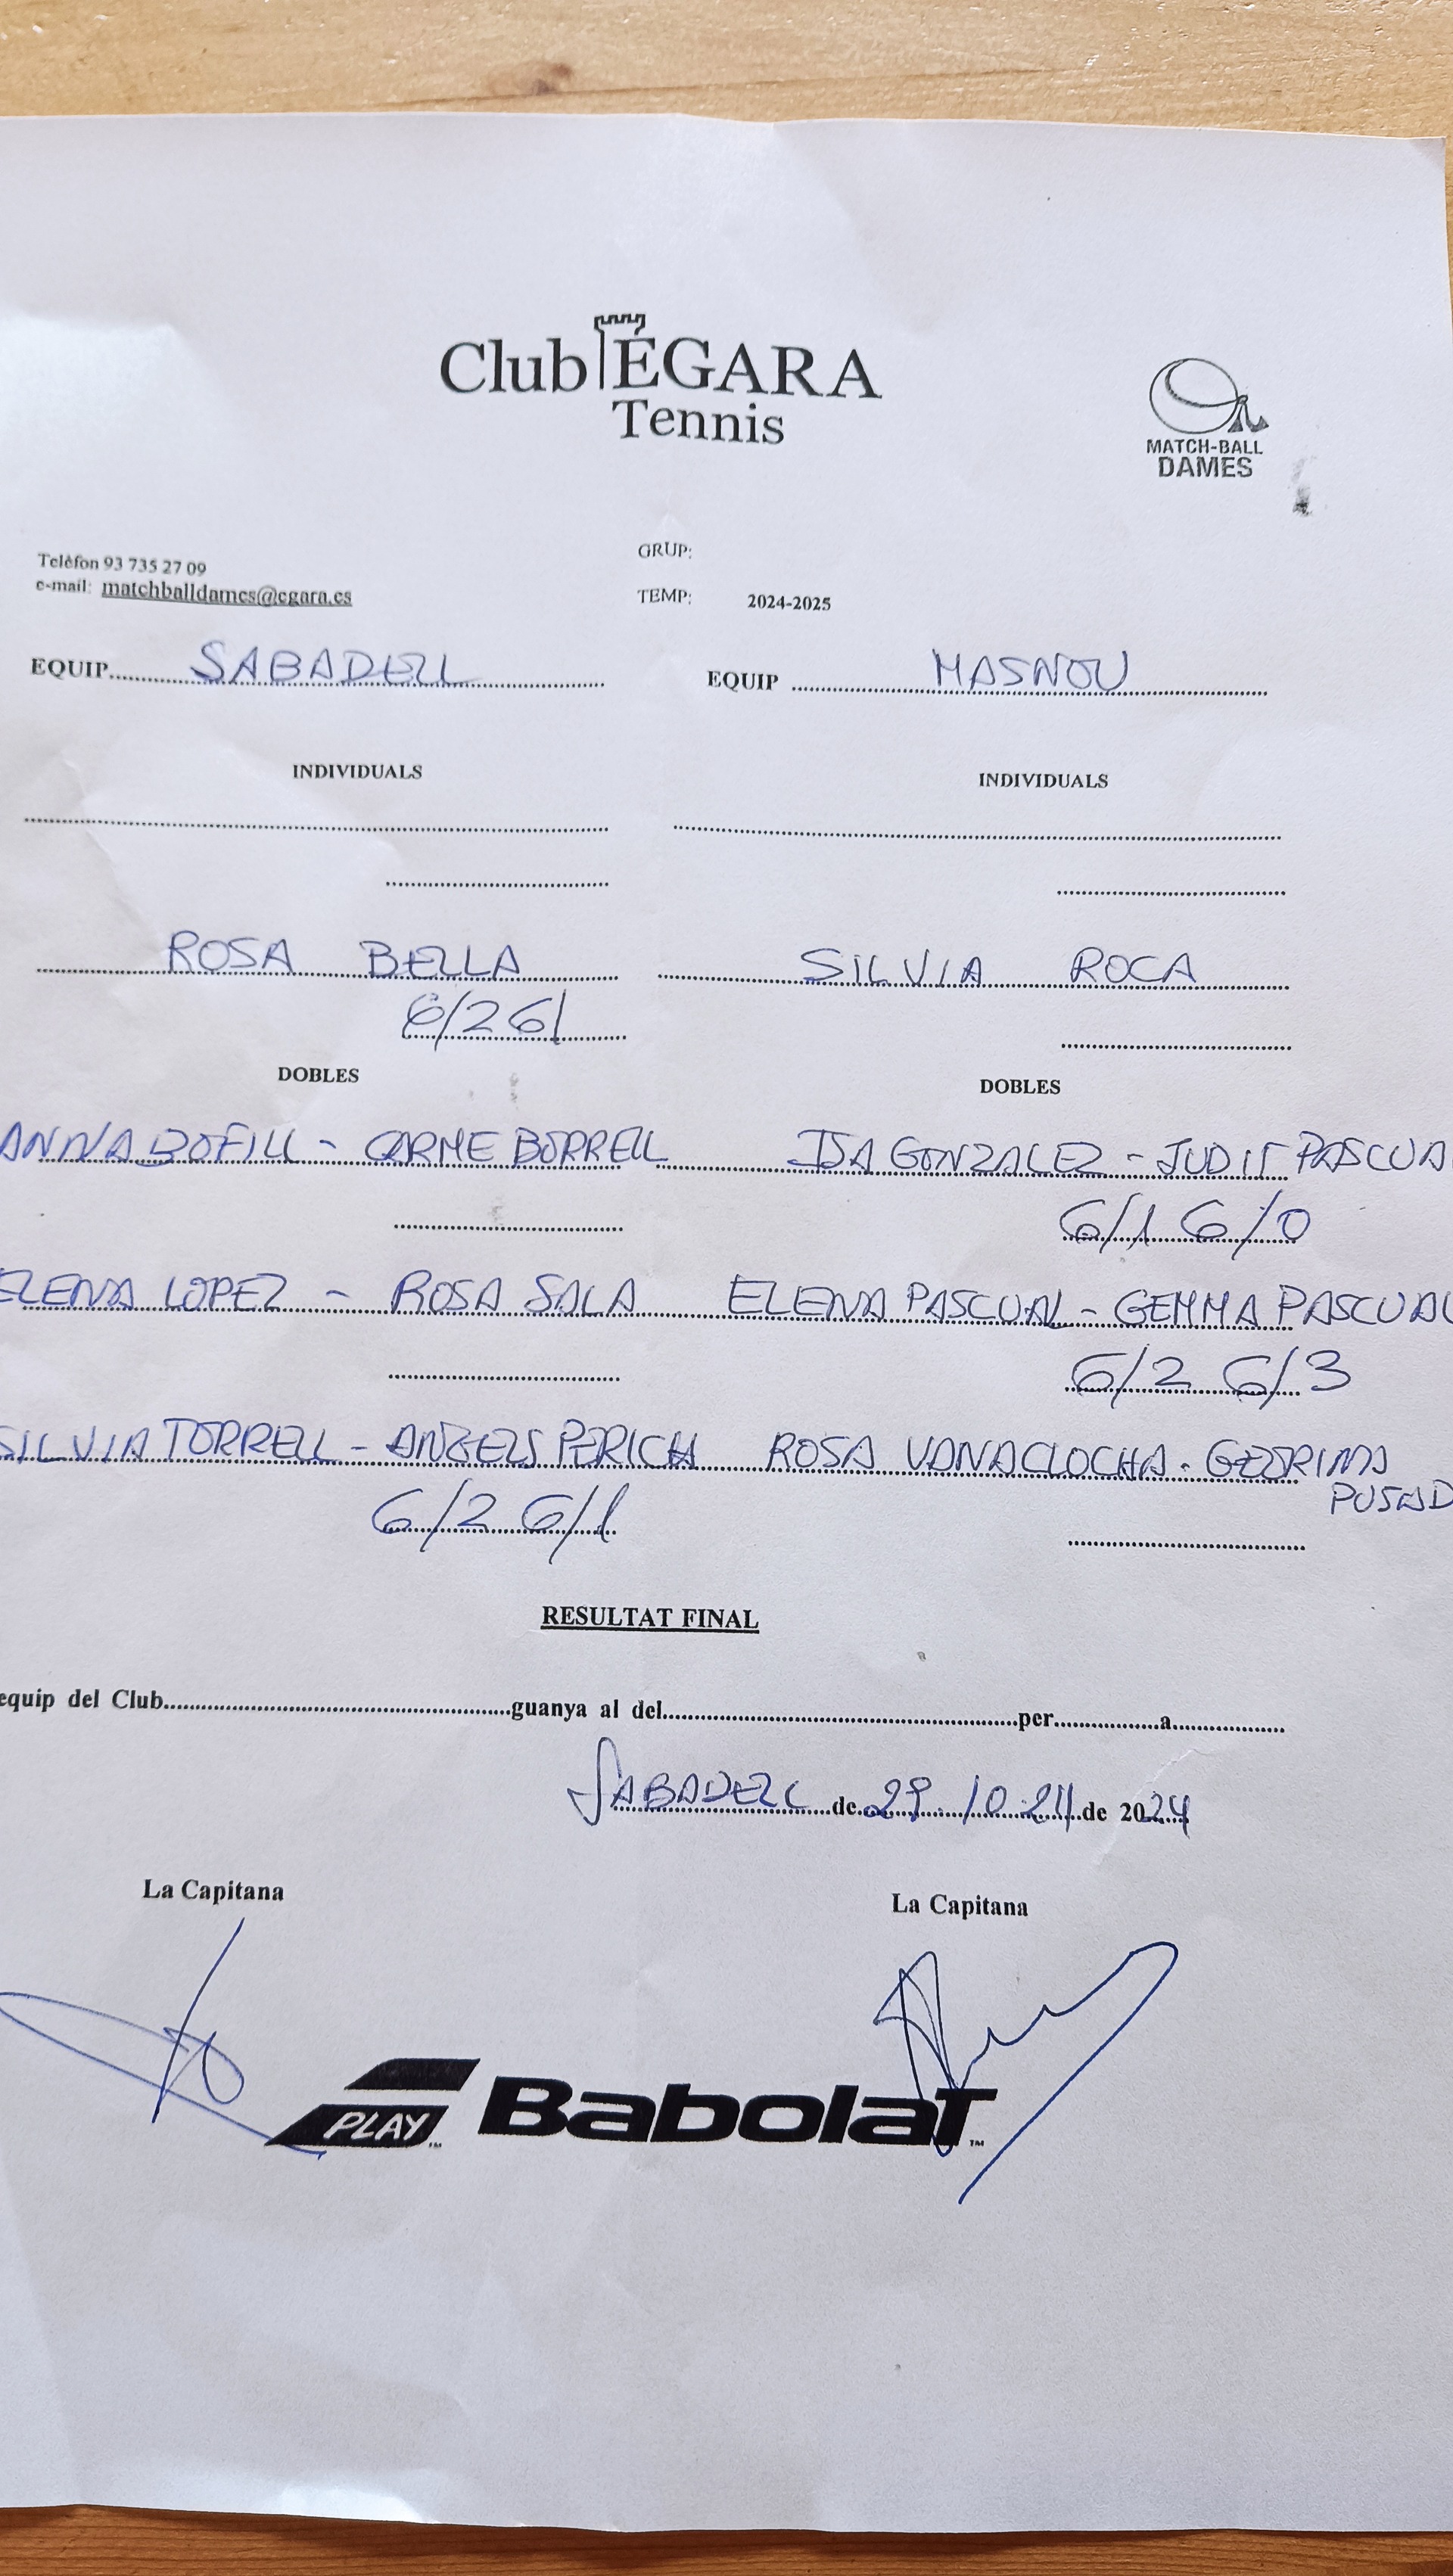 Club ÉGARA
Tennis
MATCH-BALL
DAMES
Telèfon 93 735 27 09
e-mail: matchballdames@egara.es
GRUP:
TEMP: 2024-2025
EQUIP SABADELL
EQUIP MASNOU
INDIVIDUALS
INDIVIDUALS
ROSA BELLA
SILVIA ROCA
6/2 6/
DOBLES
DOBLES
ANNA BOFILL - CARME BORRELL
ISA GONZALEZ - JUDIT PASCUA
6/1 6/0
ELENA LOPEZ - ROSA SALA
ELENA PASCUAL - GEMMA PASCUAL
6/2 6/3
SILVIA TORRELL - ANGELS PERICH
ROSA VANACLOCHA -
6/2 6/1
RESULTAT FINAL
equip del Club guanya al del per a
SABADELL de 29 10 24 de 2024
La Capitana
La Capitana
PLAY Babolat